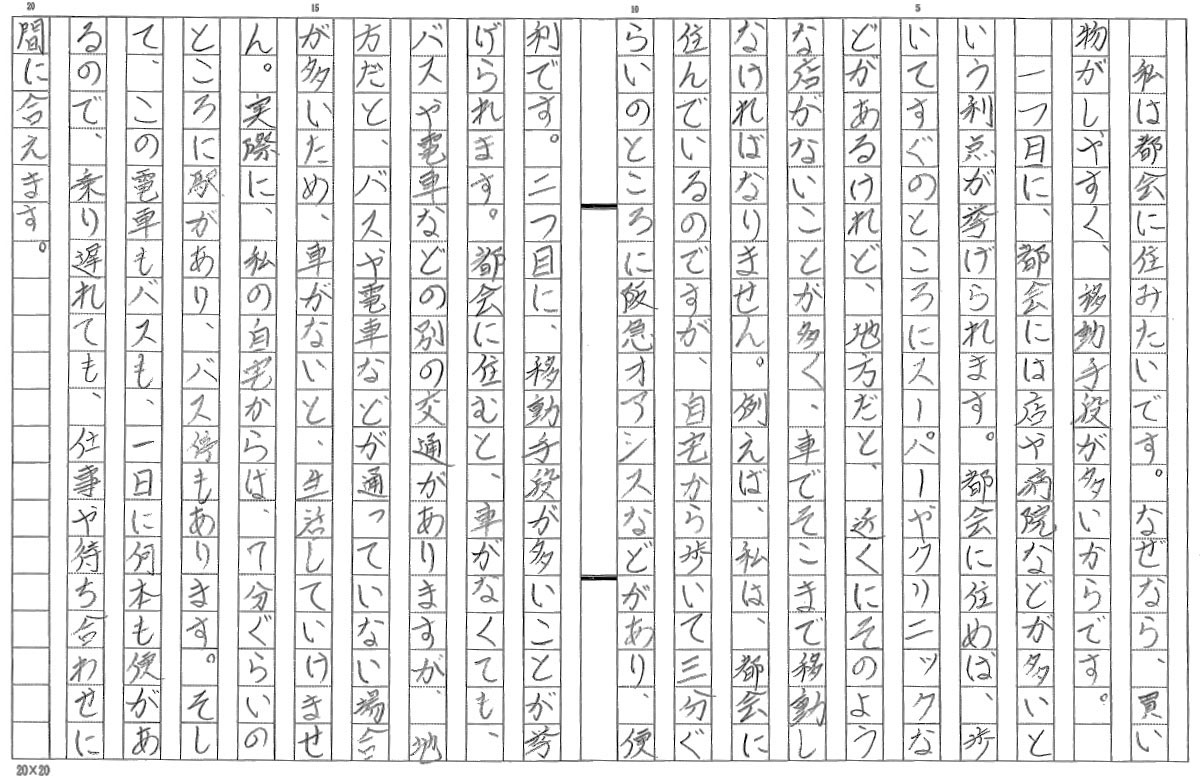 5
10
15
20
私は都会に住みたいです。なぜなら、買い
物がしやすく、移動手段が多いからです。
一つ目に、都会には店や病院などが多いと
いう利点が挙げられます。都会に住めば、歩
いてすぐのところにスーパーやクリニックな
どがあるけれど、地方だと、近くにそのよう
な店がないことが多く、車でそこまで移動し
なければなりません。例えば、私は、都会に
住んでいるのですが、自宅から歩いて三分ぐ
らいのところに阪急オアシスなどがあり、便
利です。二つ目に、移動手段が多いことが挙
げられます。都会に住むと、車がなくても、
バスや電車などの別の交通がありますが、地
方だと、バスや電車などが通っていない場合
が多いため、車がないと、生活していけませ
ん。実際に、私の自宅からは、7分ぐらいの
ところに駅があり、バス停もあります。そし
て、この電車もバスも、一日に何本も便があ
るので、乗り遅れても、仕事や待ち合わせに
間に合えます。
20×20